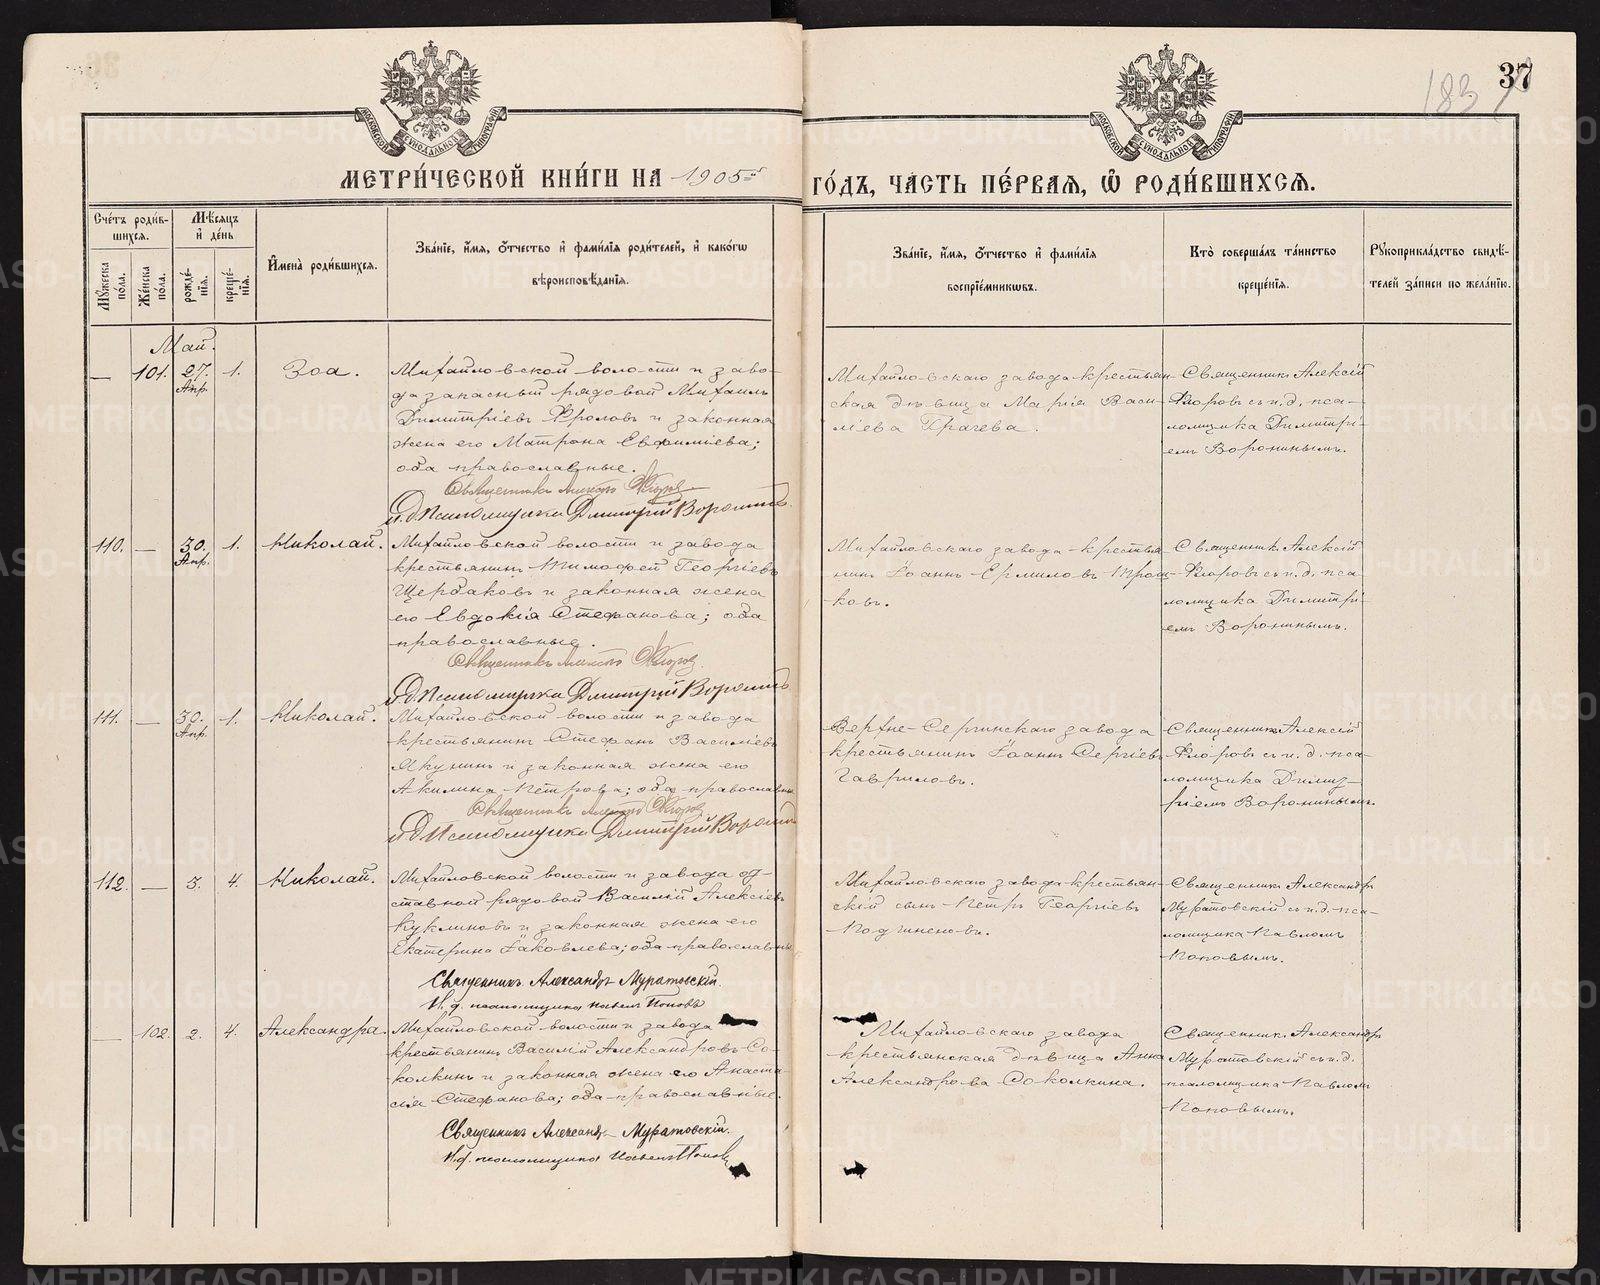 37
183
МОСКОВСКОЙ СѴНОДАЛЬНОЙ ТИПОГРАФІИ
МОСКОВСКОЙ СѴНОДАЛЬНОЙ ТИПОГРАФІИ
МЕТРИ́ЧЕСКОЙ КНИ́ГИ НА 1905й
ГО́ДЪ, ЧА́СТЬ ПЕ́РВАЯ, Ѡ҆ РОДИ́ВШИХСЯ.
Сче́тъ роди́в-
шихся.
Мѣ́сяцъ
и҆ де́нь
Мꙋ́жеска по́ла.
Же́нска по́ла.
рожде́-
нїя.
креще́-
нїя.
И҆мена̀ роди́вшихся.
Зва́нїе, и҆́мя, ѻ҆́тчество и҆ фами́лїя роди́телей, и҆ како́гѡ
вѣроисповѣ́данїя.
Зва́нїе, и҆́мя, ѻ҆́тчество и҆ фами́лїя
воспрїе́мникѡвъ.
Кто̀ соверша́лъ та́инство
креще́нїя.
Рꙋкоприкла́дство свидѣ́-
телей за́писи по жела́нїю.
Май.
— 101. 27. Апр. 1. Зоа.
Михайловской волости и заво-
да запасный рядовой Михаилъ
Димитріевъ Фроловъ и законная
жена его Матрона Евфиміева;
оба православные.
Священникъ Алексій Флоровъ
И. д. Псаломщика Дмитрій Воронинъ.
Михайловскаго завода крестьян-
ская дѣвица Марія Васи-
ліева Грачева.
Священникъ Алексій
Флоровъ съ и. д. пса-
ломщика Димитрі-
емъ Воронинымъ.
110. — 30. Апр. 1. Николай.
Михайловской волости и завода
крестьянинъ Тимофей Георгіевъ
Щербаковъ и законная жена
его Евдокія Стефанова; оба
православные.
Священникъ Алексій Флоровъ.
И. д. Псаломщика Дмитрій Воронинъ
Михайловскаго завода крестья-
нинъ Іоаннъ Ермиловъ Трош-
ковъ.
Священникъ Алексій
Флоровъ съ и. д. пса-
ломщика Димитрі-
емъ Воронинымъ.
111. — 30. Апр. 1. Николай.
Михайловской волости и завода
крестьянинъ Стефанъ Василіевъ
Якунинъ и законная жена его
Акилина Петрова; оба православны
Священникъ Алексій Флоровъ
И. д. Псаломщика Дмитрій Воронинъ
Верхне-Сергинскаго завода
крестьянинъ Іоаннъ Сергіевъ
Гавриловъ.
Священникъ Алексій
Флоровъ съ и. д. пса-
ломщика Димит-
ріемъ Воронинымъ.
112. — 3. 4. Николай.
Михайловской волости и завода от-
ставной рядовой Василій Алексіевъ
Куклиновъ и законная жена его
Екатерина Іаковлева; оба православны
Священникъ Александръ Муратовскій.
И. д. псаломщика Павелъ Поповъ
Михайловскаго завода крестьян-
скій сынъ Петръ Георгіевъ
Подчиненовъ.
Священникъ Александръ
Муратовскій съ и. д. пса-
ломщика Павломъ
Поповымъ.
— 102. 2. 4. Александра.
Михайловской волости и завода
крестьянинъ Василій Александровъ Со-
колкинъ и законная жена его Анаста-
сія Стефанова; оба православные.
Священникъ Александръ Муратовскій.
И. д. псаломщика Павелъ Поповъ
Михайловскаго завода
крестьянская дѣвица Анна
Александрова Соколкина.
Священникъ Александръ
Муратовскій съ и. д.
псаломщика Павломъ
Поповымъ.
METRIKI.GASO-URAL.RU